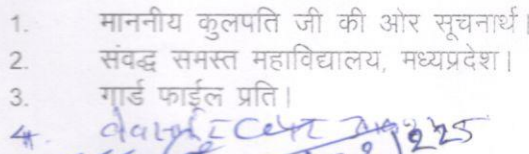 1. माननीय कुलपति जी की ओर सूचनार्थ।
2. संवद्ध समस्त महाविद्यालय, मध्यप्रदेश।
3. गार्ड फाईल प्रति।
4.